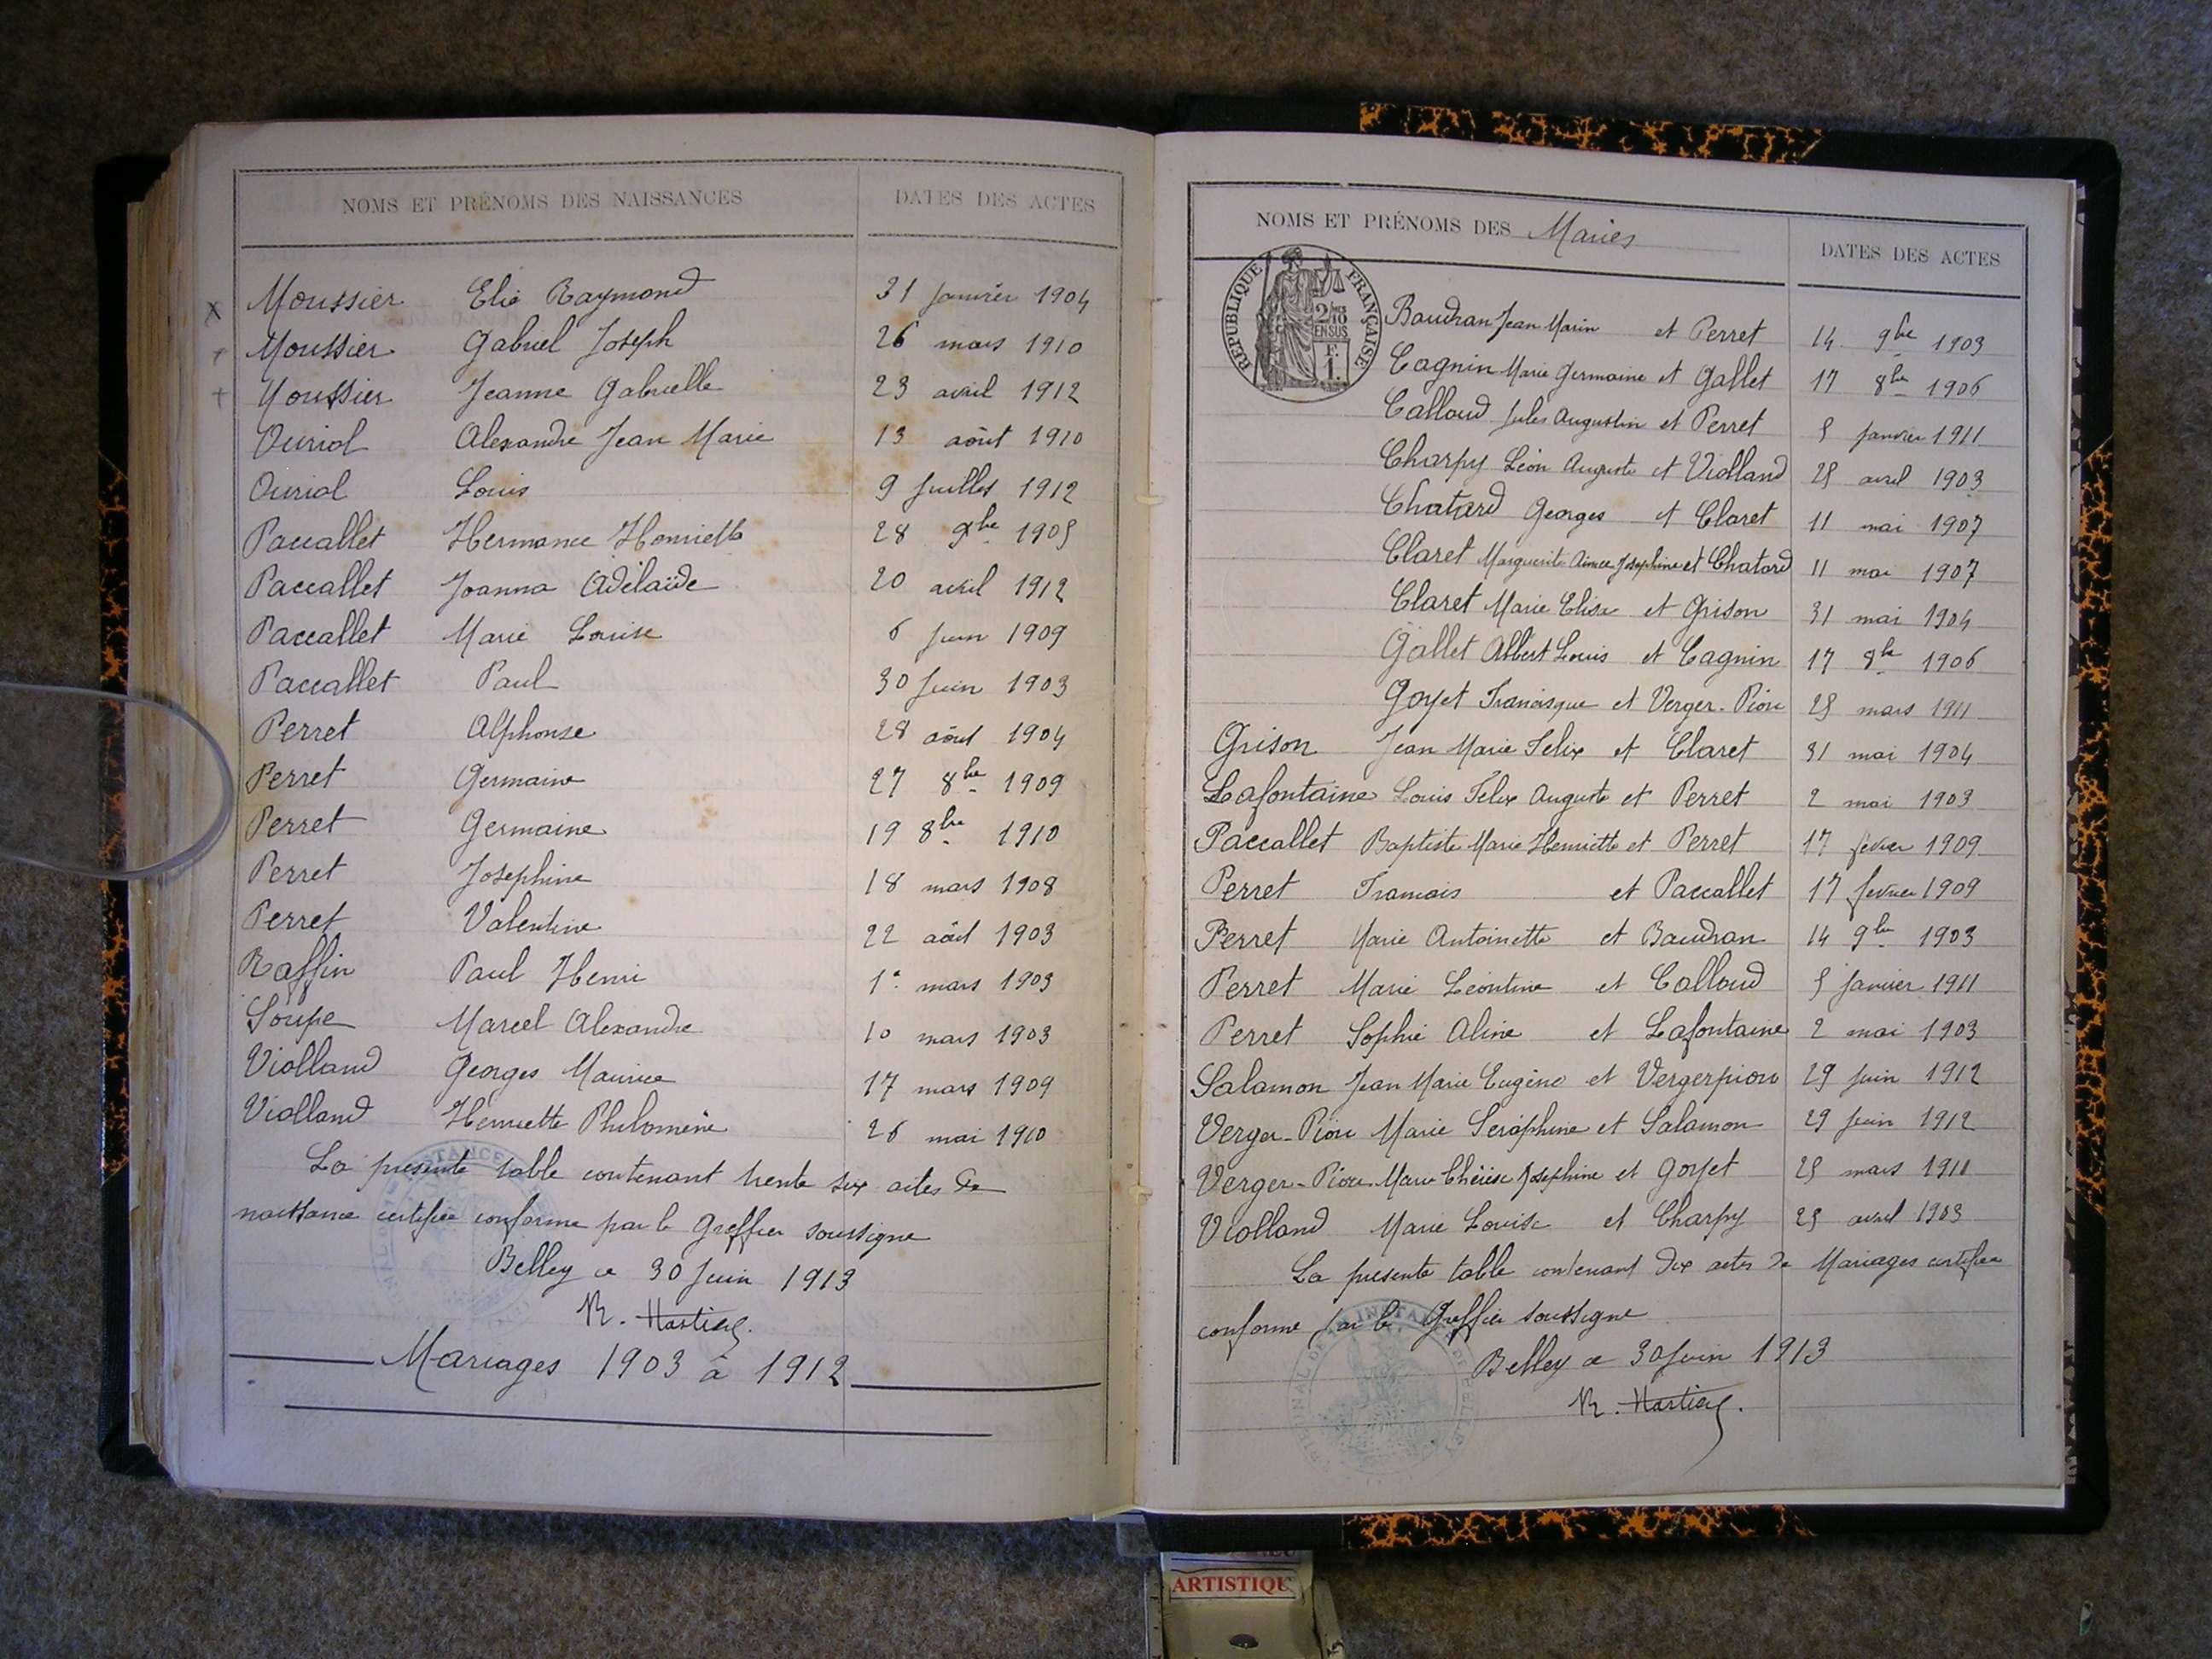 NOMS ET PRÉNOMS DES NAISSANCES DATES DES ACTES
x Moussier Elie Raymond 31 Janvier 1904
+ Moussier Gabriel Joseph 26 mars 1910
+ Moussier Jeanne Gabrielle 23 avril 1912
Ouriol Alexandre Jean Marie 13 août 1910
Ouriol Louis 9 Juillet 1912
Paccallet Hermance Henriette 28 1905
Paccallet Joanna Adélaïde 20 avril 1912
Paccallet Marie Louise 6 Juin 1909
Paccallet Paul 30 Juin 1903
Perret Alphonse 28 août 1904
Perret Germaine 27 8bre 1909
Perret Germaine 19 8bre 1910
Perret Joséphine 18 mars 1908
Perret Valentine 22 août 1903
Raffin Paul Henri 1er mars 1903
Soupe Marcel Alexandre 10 mars 1903
Violland Georges Maurice 17 mars 1909
Violland Henriette Philomène 26 mai 1910
La présente table contenant trente six actes de
naissance certifiée conforme par le Greffier soussigné
Belley ce 30 Juin 1913
Mariages 1903 à 1912
NOMS ET PRÉNOMS DES Mariés DATES DES ACTES
RÉPUBLIQUE FRANÇAISE
2/10 EN SUS
F. 1.
Baudran Jean Marin et Perret 14 9bre 1903
Cagnin Marie Germaine et Gallet 17 8bre 1906
Calloud Jules Augustin et Perret 5 Janvier 1911
Charpy Léon Auguste et Violland 25 avril 1903
Chatard Georges et Claret 11 mai 1907
Claret Marguerite Aimée Joséphine et Chatard 11 mai 1907
Claret Marie Elisa et Grison 31 mai 1904
Gallet Albert Louis et Cagnin 17 8bre 1906
Goyet Francisque et Verger-Pion 25 mars 1911
Grison Jean Marie Felix et Claret 31 mai 1904
Lafontaine Louis Felix Auguste et Perret 2 mai 1903
Paccallet Baptiste Marie Henriette et Perret 17 février 1909
Perret François et Paccallet 17 février 1909
Perret Marie Antoinette et Baudran 14 9bre 1903
Perret Marie Léontine et Calloud 5 Janvier 1911
Perret Sophie Aline et Lafontaine 2 mai 1903
Salamon Jean Marie Eugène et Vergerpion 29 Juin 1912
Verger-Pion Marie Séraphine et Salamon 29 Juin 1912
Verger-Pion Marie Thérèse Joséphine et Goyet 25 mars 1911
Violland Marie Louise et Charpy 25 avril 1903
La présente table contenant dix actes de Mariages certifiée
conforme par le Greffier soussigné
Belley ce 30 Juin 1913
ARTISTIQU